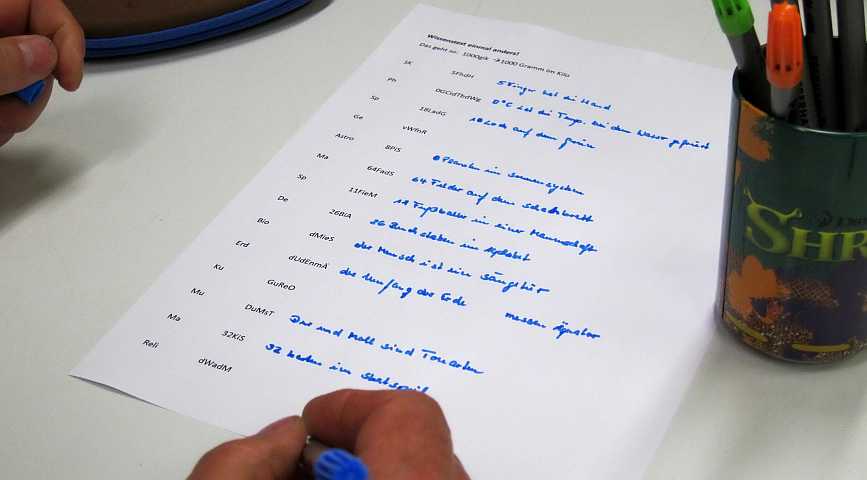 Wissenstest einmal anders!
Das geht so: 1000giK → 1000 Gramm im Kilo
SK 5FhdH 5 Finger hat die Hand
Ph 0GCidTbdWg 0°C ist die Temp. bei dem Wasser gefriert
Sp 18LadG 18 Loch auf dem Grün
Ge vWfnR
Astro 8PiS 8 Planeten im Sonnensystem
Ma 64FadS 64 Felder auf dem Schachbrett
Sp 11FieM 11 Fußballer in einer Mannschaft
De 26BiA 26 Buchstaben im Alphabet
Bio dMieS der Mensch ist ein Säugetier
Erd dUdEnmÄ der Umfang der Erde messen Äquator
Ku GuReO
Mu DuMsT Dur und Moll sind Tonarten
Ma 32KiS 32 Karten im Skatspiel
Reli dWadM
SHR